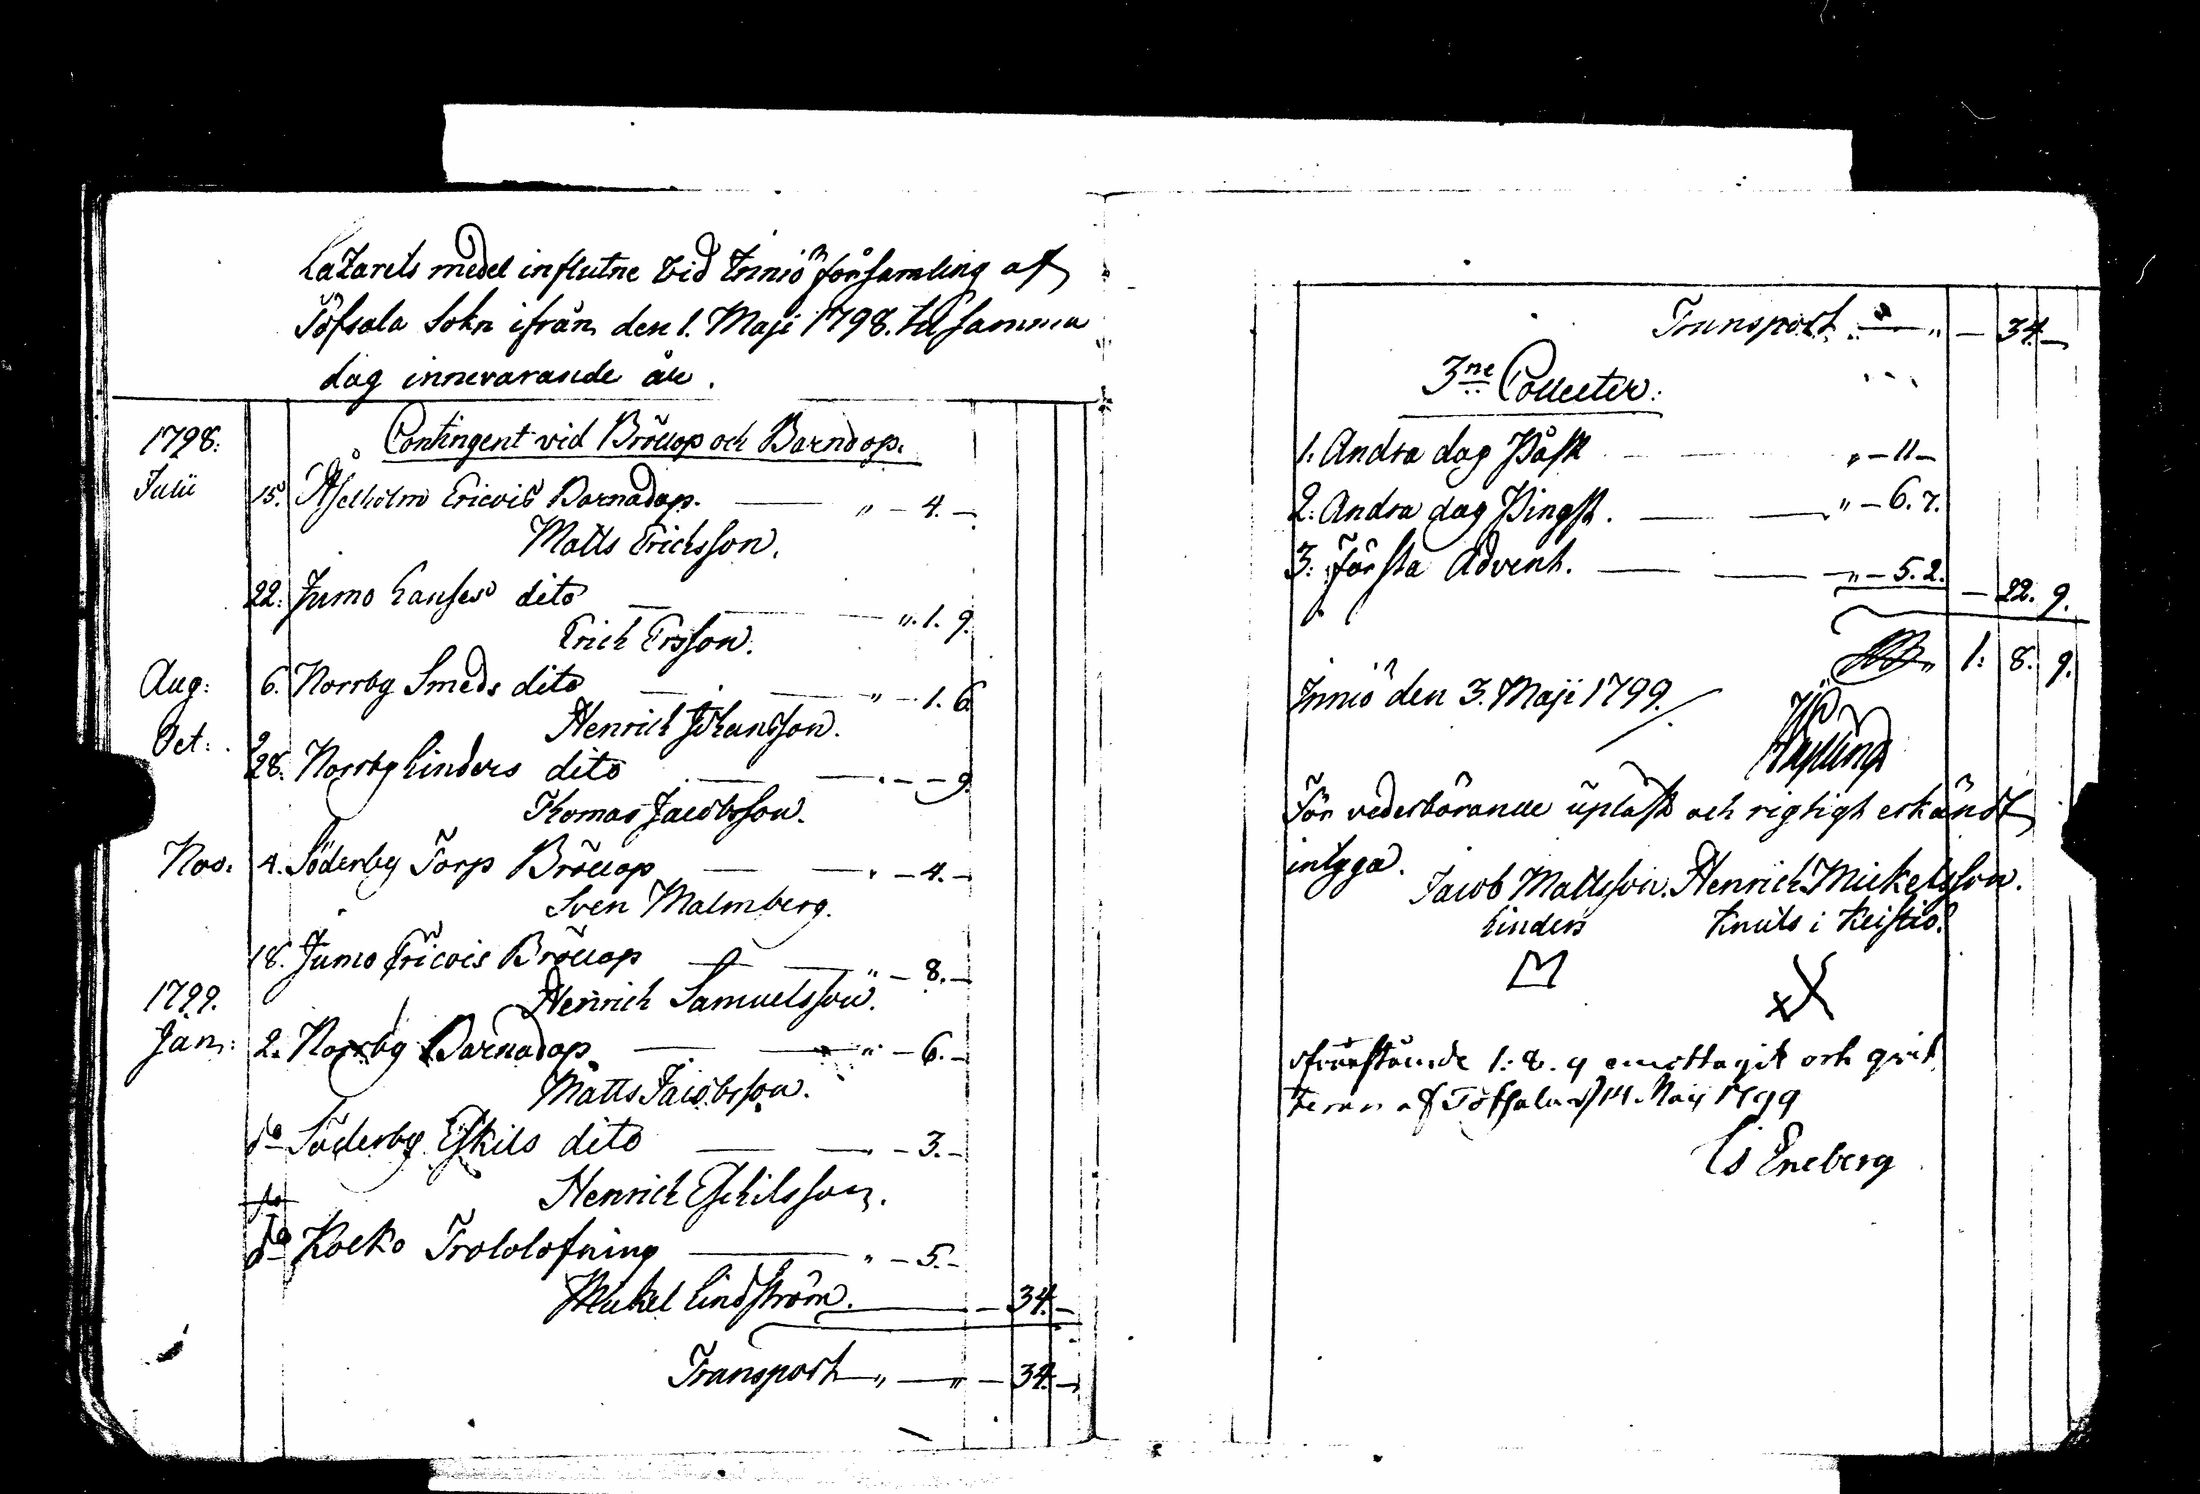 Lazarets medel influtne vid Inniö församling af
Töfsala Sokn ifrån den 1. Maji 1798. til samma
dag innevarande år.
Contingent vid Bröllop och Barndop.
1798.
Julii 15. Åselholm Ericvis Barnadop. — " — 4. —
Matts Erichsson.
22. Jumo Lauses dito — " . 1. 9.
Erich Ersson.
Aug: 6. Norrby Smeds dito — " — 1. 6
Henrich Johansson.
Oct: 28. Norrby Linders dito — — 9.
Thomas Jacobsson.
Nov: 4. Söderby Torp Bröllop — " — 4. —
Sven Malmberg.
18. Jumo Ericvis Bröllop — " — 8. —
Henrich Samuelsson.
1799.
Jan: 2. Norrby Barnadop — " — 6. —
Matts Jacobsson.
do Söderby Eskils dito — — 3. —
Henrich Eschilsson.
do Kolko Trololofning — " — 5. —
Michel Lindström. — 34. —
Transport " — " — 34. —
Transport " — 34. —
3ne Collecter.
1. Andra dag Påsk " — 11 —
2. Andra dag Pingst. — " — 6. 7.
3. Första Advent. — " — 5. 2. — 22. 9.
1: 8. 9.
Inniö den 3. Maji 1799.
För vederbörande upläst och rigtigt erkändt
intyga. Jacob Mattsson. Henrich Mickelsson.
Linders Knuts i Keistiö
1: 8. 9 emottagit och qvit
teras af Töfsala d 14 Maij 1799
Eneberg